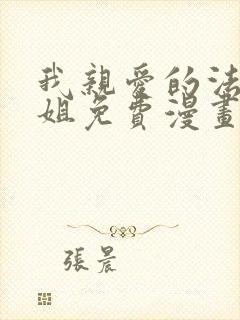 我親愛的法
姐免費漫畫
張晨